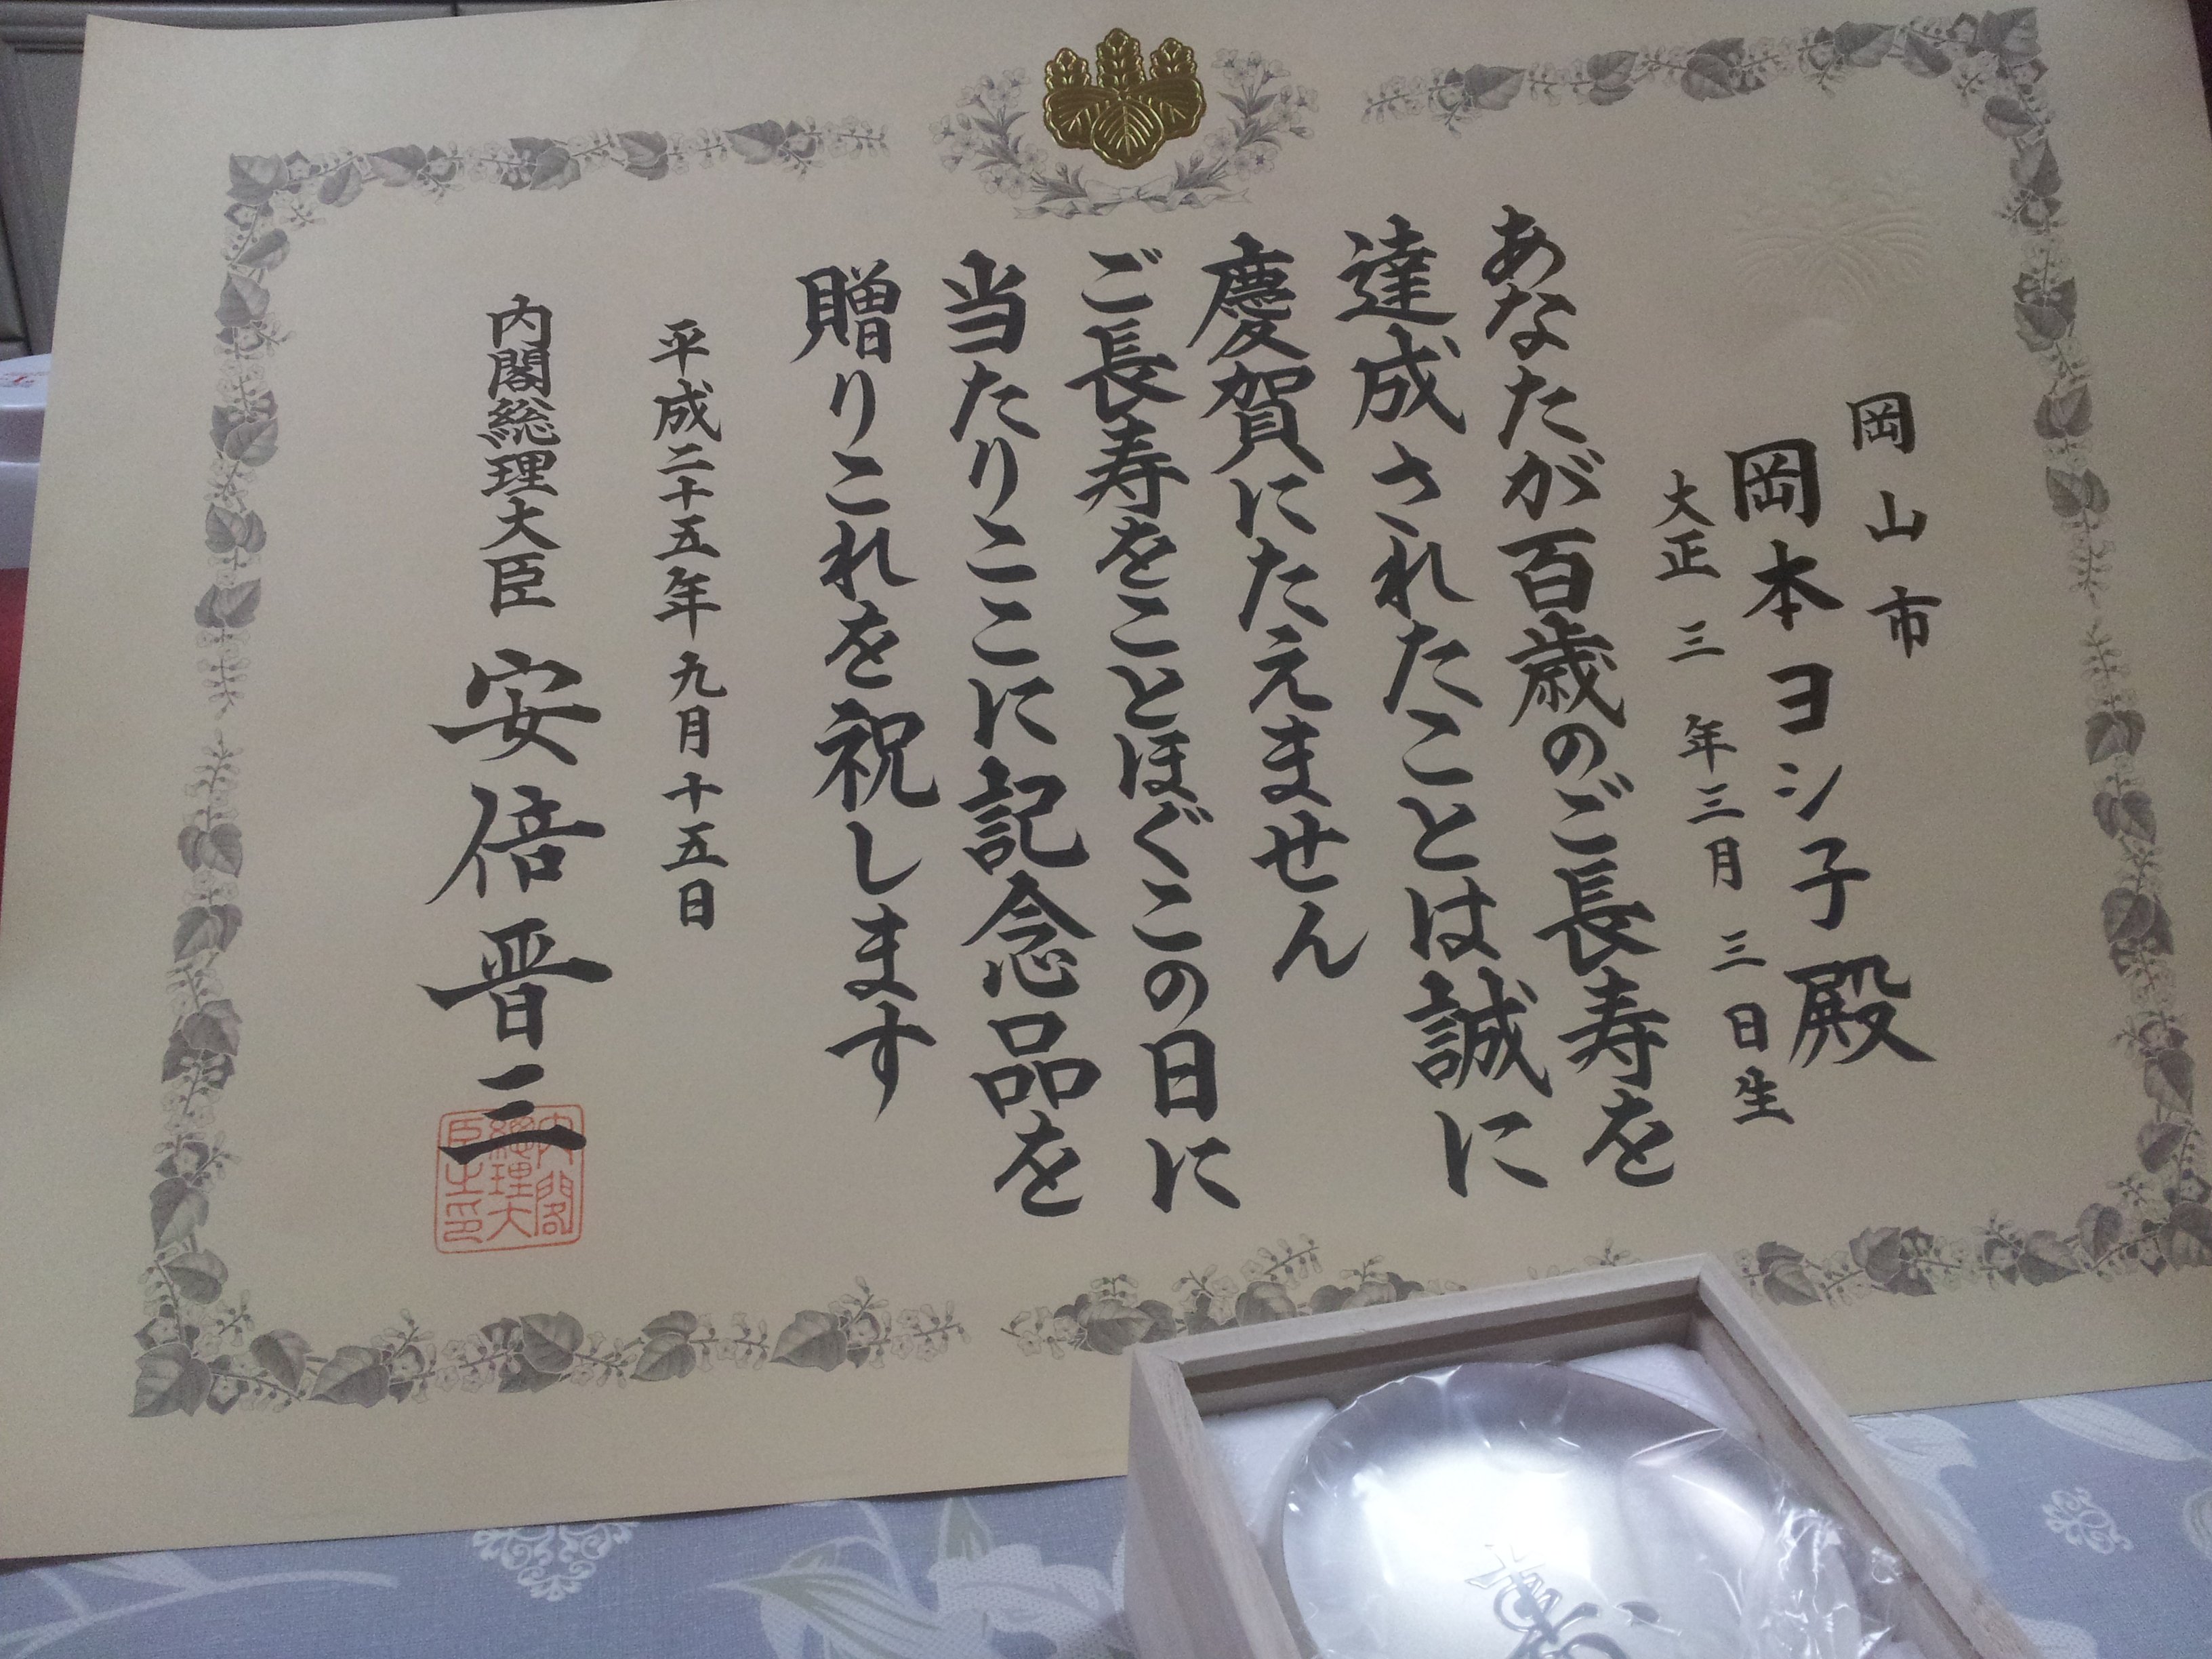 岡山市
岡本ヨシ子殿
大正三年三月三日生
あなたが百歳のご長寿を
達成されたことは誠に
慶賀にたえません
ご長寿をことほぐこの日に
当たりここに記念品を
贈りこれを祝します
平成二十五年九月十五日
内閣総理大臣 安倍晋三
内閣
總理大
臣之印
寿